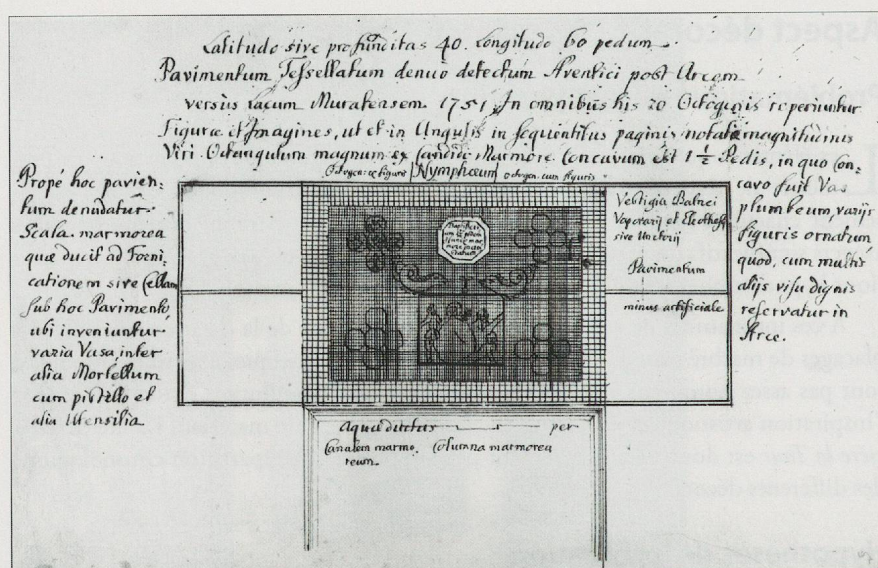 Latitudo sive profunditas 40. Longitudo 60 pedum.
Pavimentum Tessellatum denuo detectum Aventici post Arcem
versus Lacum Muratensem 1751. In omnibus his 20 Octogonis reperiuntur
Figuræ et Imagines, ut et in Angulis in sequentibus paginis notatæ magnitudinis
Viri. Octangulum magnum ex Candido Marmore Concavum est 1 1/2 Pedis, in quo Con-
cavo fuit Vas
plumbeum, varijs
figuris ornatum
quod, cum multis
alijs visu dignis
reservatur in
Arce.
Propé hoc pavien:
tum denudatur
Scala marmorea
quæ ducit ad Forni:
cationem sive Cellam
sub hoc Pavimento
ubi inveniuntur
varia Vasa inter
alia Mortellum
cum pistillo et
alia Utensilia
Octogon. cum figuris
Nymphæum
octogon. cum figuris
Vestigia Balnei
Vaporarij et
sive Unctorij
Pavimentum
minus artificiale
Aquæductus per
Canalem marmo: Columna marmorea
reum.
Aspect décor